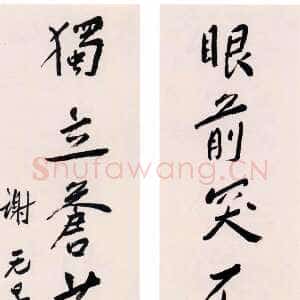 眼前突
獨立蒼
谢无
Shufawang.CN